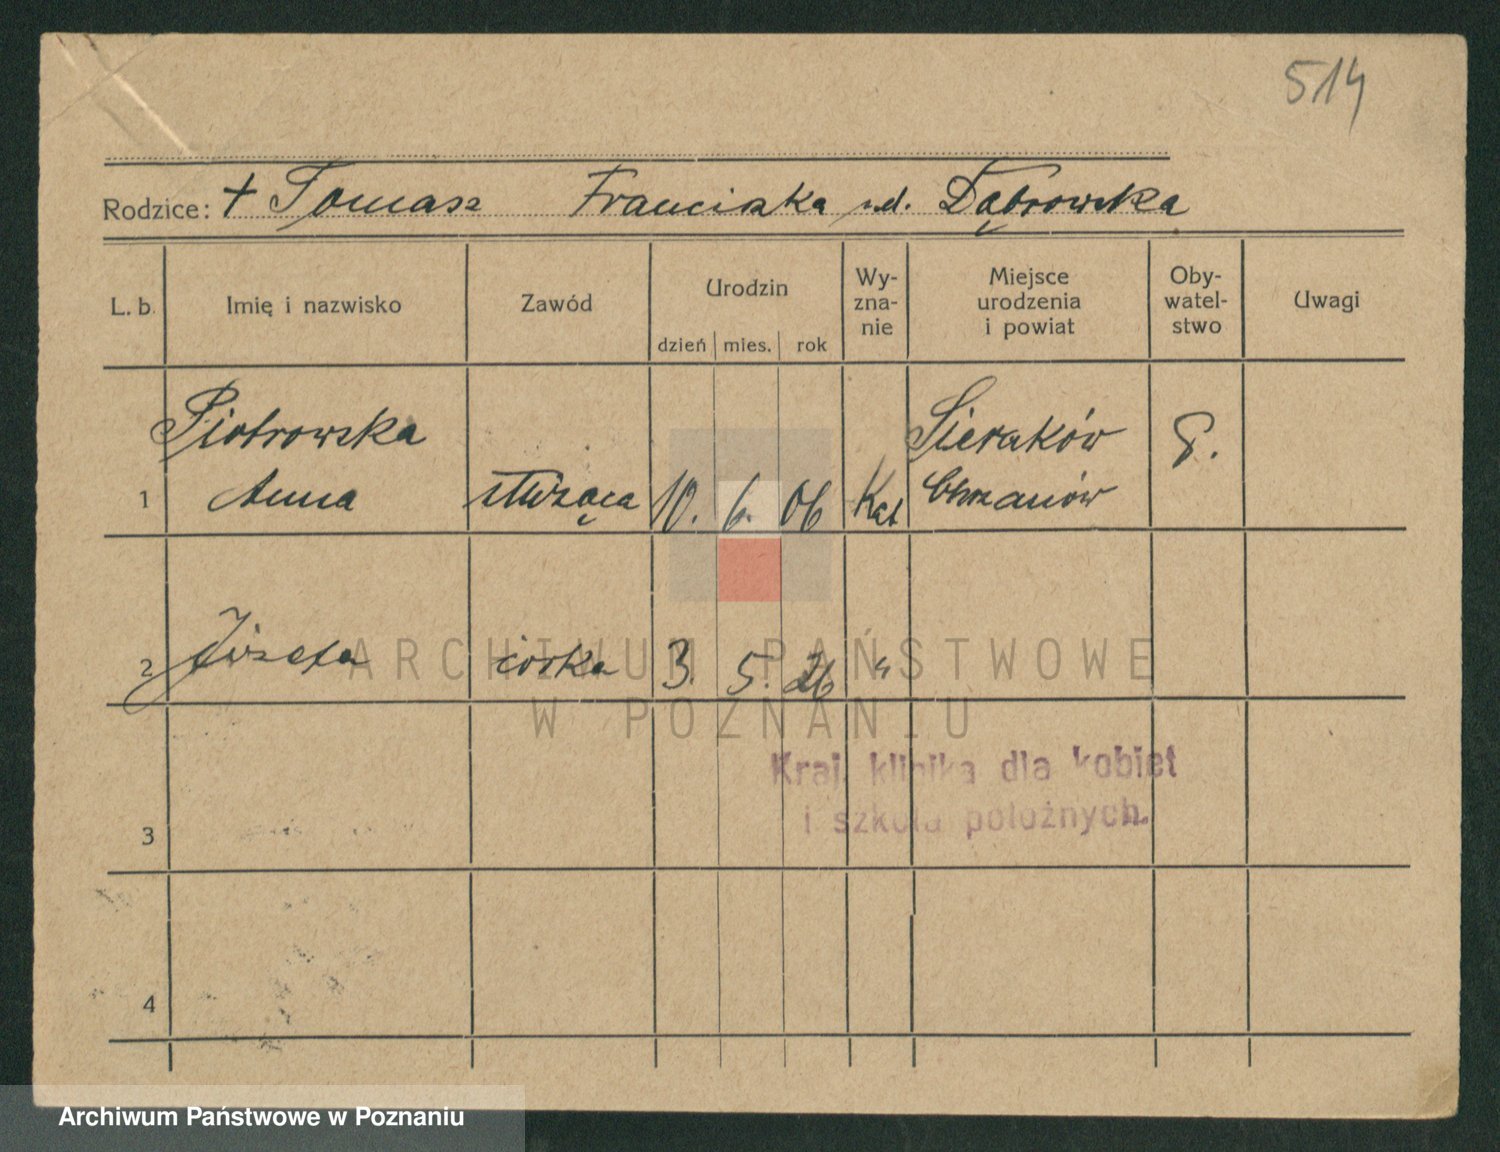 514
Rodzice: + Tomasz Franciszka z d. Dąbrowska
L. b. Imię i nazwisko Zawód Urodzin Wy-zna-nie Miejsce urodzenia i powiat Oby-watel-stwo Uwagi
dzień mies. rok
Piotrowska Sieraków
1 Anna służąca 10. 6. 06 Kat Chrzanów
2 Józefa córka 3. 5. 26 "
ARCHIWUM PAŃSTWOWE
W POZNANIU
Kraj. klinika dla kobiet
i szkoła położnych.
3
4
Archiwum Państwowe w Poznaniu